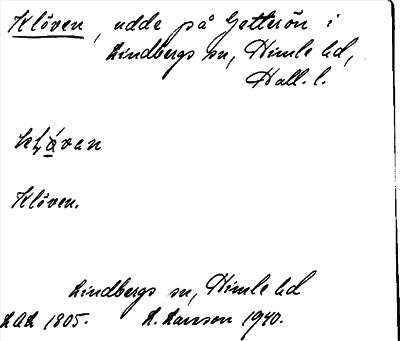 Klöven, udde på Getterön i
Lindbergs sn, Himle hd,
Hall. l.
Klöven.
Lindbergs sn, Himle hd
LAL 1805. L. Larsson 1940.